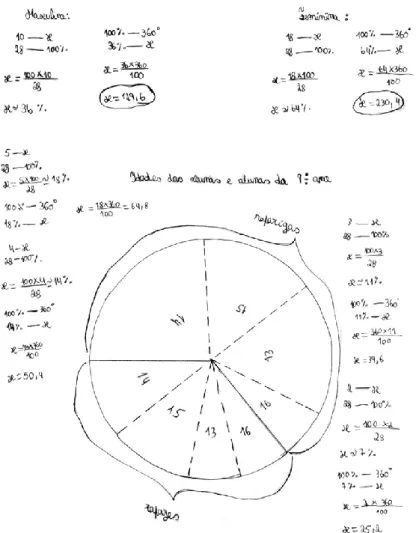 Masculina:
10 — x
28 — 100%
x = 100×10 / 28
x ≈ 36 %.
100% — 360°
36% — x
x = 36×360 / 100
x = 129,6
Feminina:
18 — x
28 — 100%
x = 18×100 / 28
x ≈ 64%.
100% — 360°
64% — x
x = 64×360 / 100
x = 230,4
5 — x
28 — 100%
x = 5×100 / 28 ≈ 18%
100% — 360°
18% — x
x = 18×360 / 100 = 64,8
4 — x
28 — 100%
x = 100×4 / 28 ≈ 14%
100% — 360°
14% — x
x = 14×360 / 100
x = 50,4
Idades dos alunos e alunas da 9º ano
raparigas
14
15
13
16
14
15
13
16
rapazes
3 — x
28 — 100%
x = 100×3 / 28
x ≈ 11%
100% — 360°
11% — x
x = 360×11 / 100
x = 39,6
2 — x
28 — 100%
x = 100 ×2 / 28
x ≈ 7%
100% — 360°
7% — x
x = 7 × 360 / 100
x = 25,2